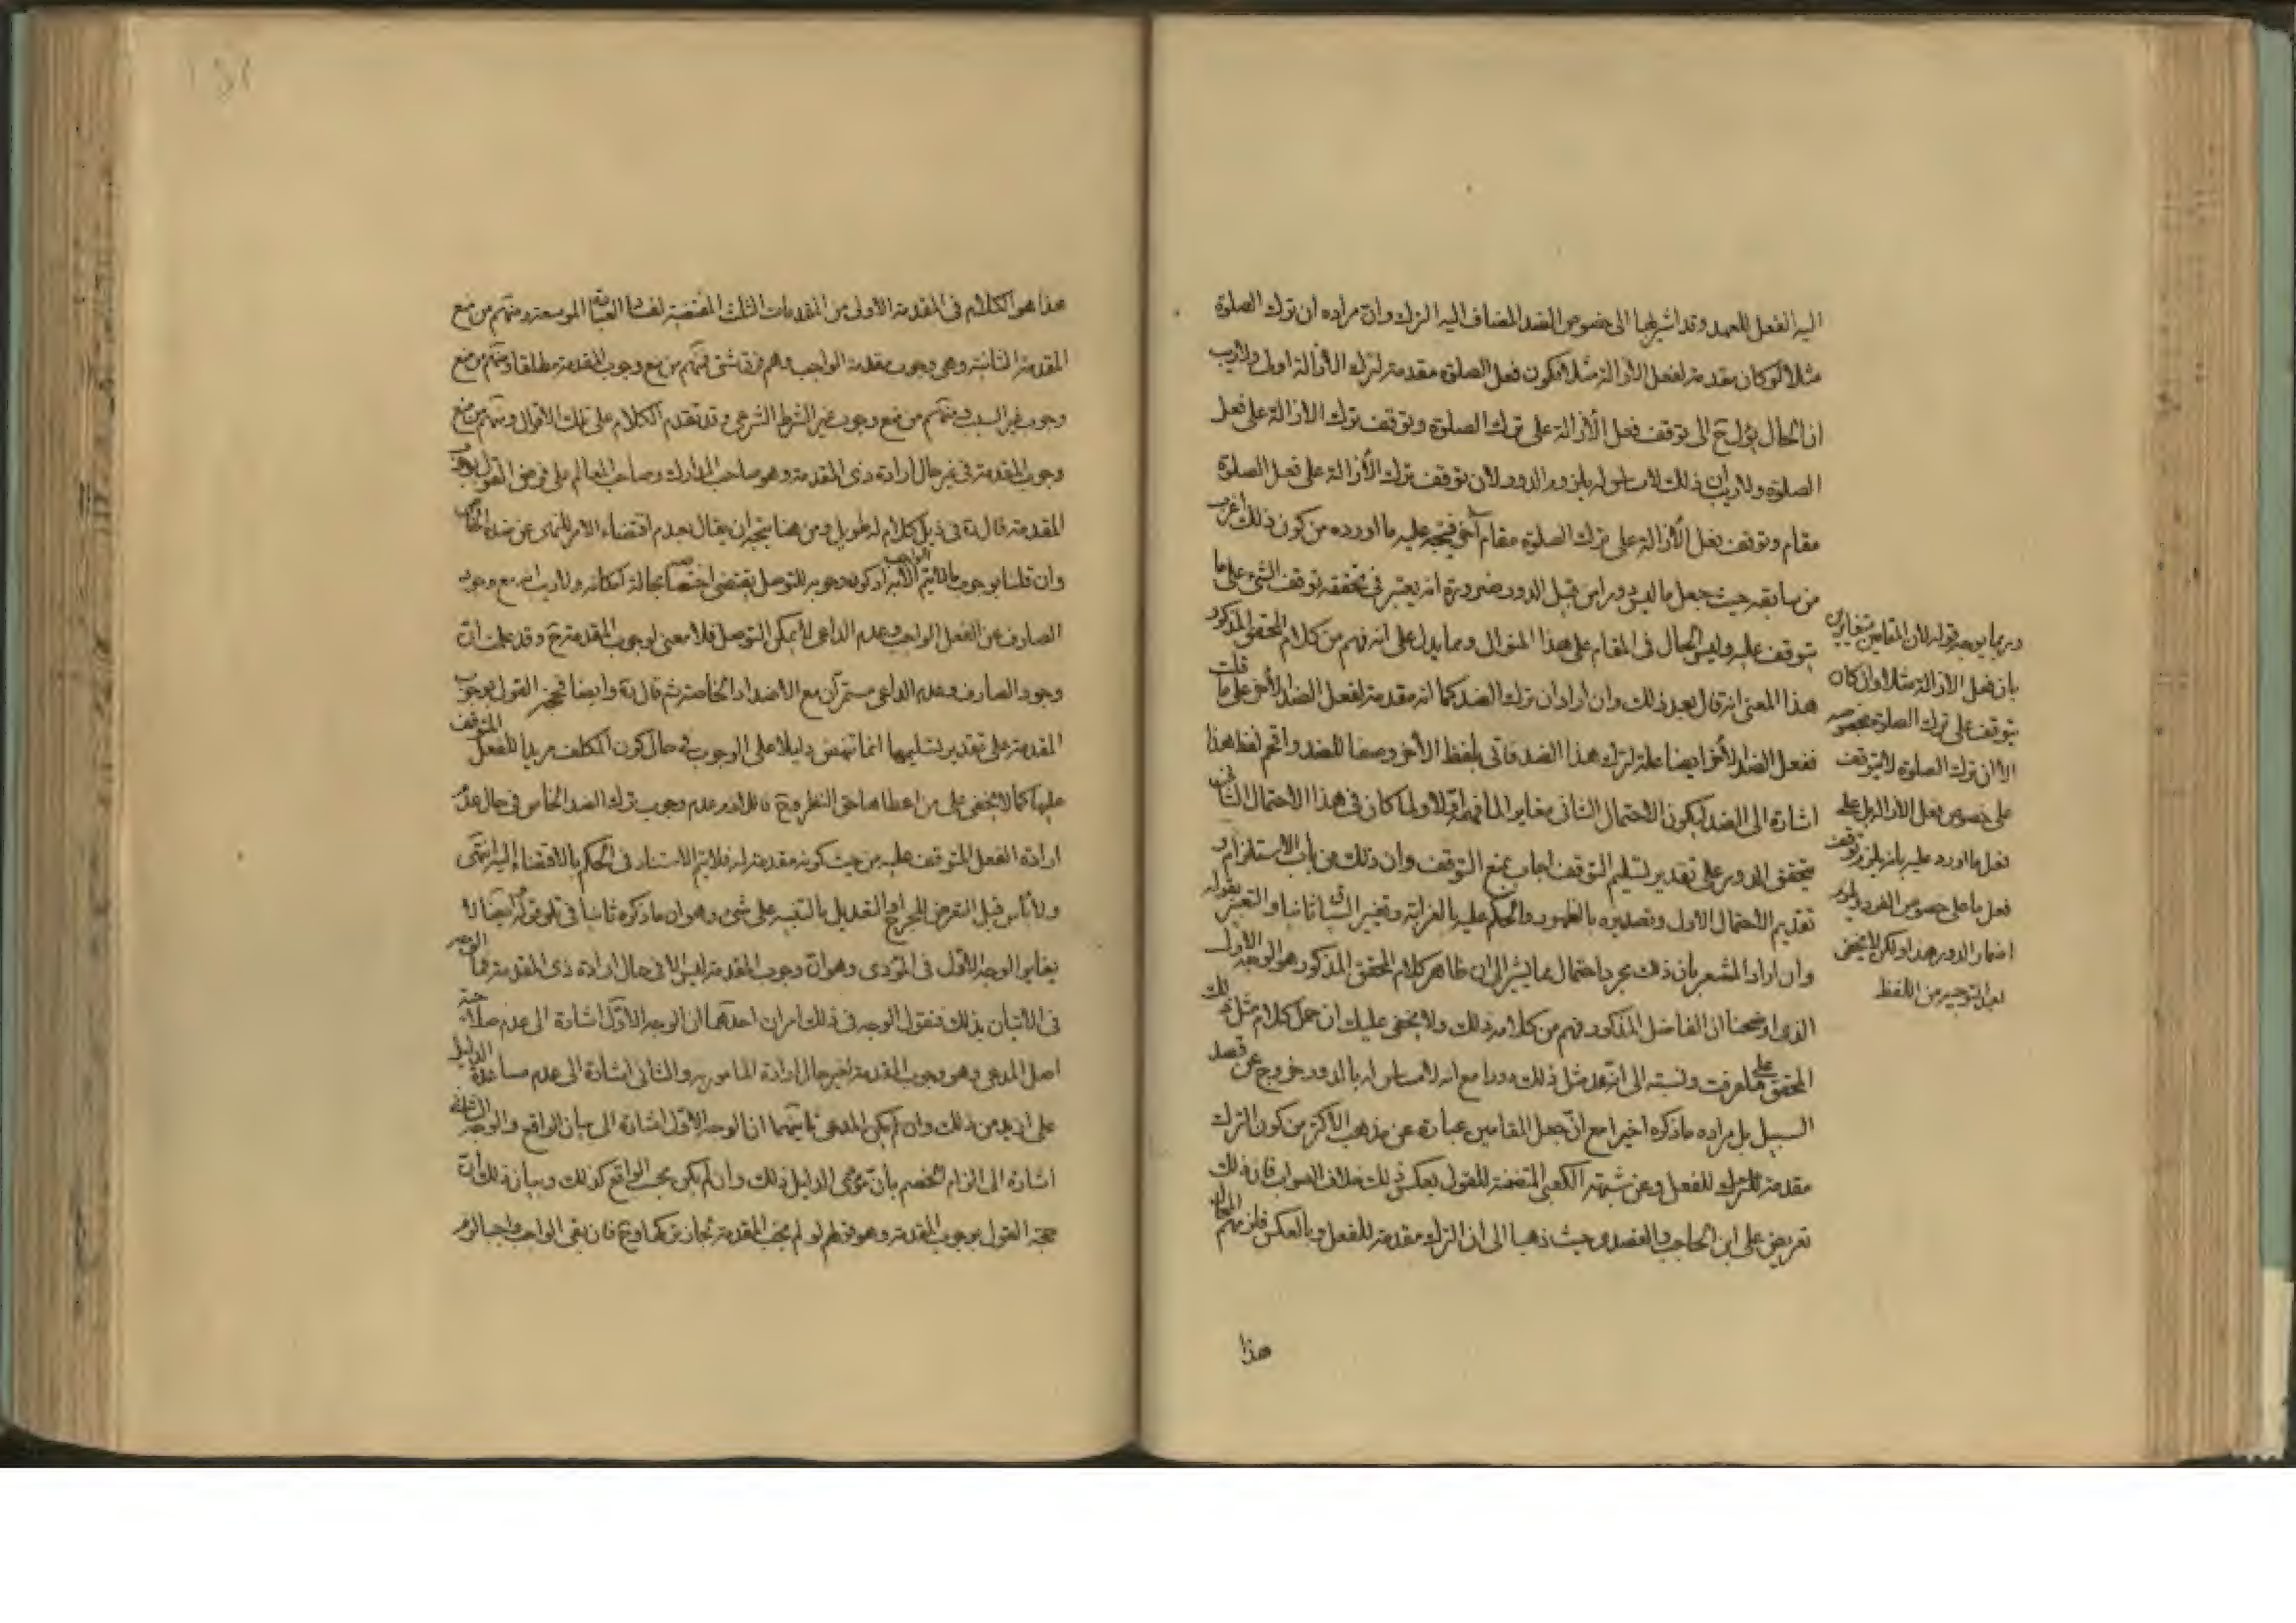 اليه الفعل للعهد وقد اشير بها الى خصوص الضد المضاف اليه الترك وان مراده ان ترك الصلوة
مثلا لو كان مقدمة لفعل الازالة مثلا فيكون فعل الصلوة مقدمة لترك الازالة اولى ولا ريب
ان الحال يؤل ح الى توقف فعل الازالة على ترك الصلوة وتوقف ترك الازالة على فعل
الصلوة ولا ريب ان ذلك لا مساس له بلزوم الدور لان توقف ترك الازالة على فعل الصلوة
مقام وتوقف فعل الازالة على ترك الصلوة مقام آخر فيتجه عليه ما اورده من كون ذلك اغرب
من سابقه حيث جعل ما ليس دورا من قبيل الدور ضرورة انه يعتبر في تحققه توقف الشيء على ما
يتوقف عليه وليس الحال في المقام على هذا المنوال ومما يدل على انه فهم من كلام المحقق المذكور
هذا المعنى انه قال بعد ذلك وان اراد ان ترك الضد كما انه مقدمة لفعل الضد الآخر على ما قلت
ففعل الضد الآخر ايضا علة لترك هذا الضد فاتى بلفظ الآخر وصفا للضد واقحم لفظ هذا
اشارة الى الضد ليكون الاحتمال الثاني مغايرا لما فهمه اولا ولما كان في هذا الاحتمال الثاني
يتحقق الدور على تقدير تسليم التوقف اجاب بمنع التوقف وان ذلك من باب الاستلزام و
تقديم الاحتمال الاول وتصديره بالظهور والحكم عليه بالغرابة وتغيير ثانيا والتعبير بقوله
وان اراد المشعر بان ذلك مجرد احتمال مما يشير الى ان ظاهر كلام المحقق المذكور هو الوجه الاول
الذي اوضحنا ان الفاضل المذكور فهم من كلامه ذلك ولا يخفى عليك ان حمل كلام مثل ذلك
المحقق على ما عرفت ونسبته الى انه عد مثل ذلك دورا مع انه لا مساس له بالدور خروج عن قصد
السبيل بل مراده ما ذكره اخيرا مع ان جعل المقامين عبارة عن مذهب الاكثر من كون الترك
مقدمة للفعل وعن شبهة الكعبي المتضمنة للقول بعكس ذلك خلاف الصواب فان ذلك
تعريض على ابن الحاجب والعضدي حيث ذهبا الى ان الترك مقدمة للفعل وبالعكس فلزمهم المحال
وربما يوجه قوله لان المقامين متغايران
بان فعل الازالة مثلا وان كان
يتوقف على ترك الصلوة بخصوصه
الا ان ترك الصلوة لا يتوقف
على خصوص فعل الازالة بل على
فعل ما اورد عليه بانه يلزم توقف
فعل ما على خصوص الفرد
اضمار الدور هذا ولكن لا يخفى
بعد التوجيه من اللفظ
هذا
هذا هو الكلام في المقدمة الاولى من المقدمات الثلث المقتضية لفساد العبادة الموسعة ومنهم من منع
المقدمة الثانية وهي وجوب مقدمة الواجب وهم فرق شتى فمنهم من منع وجوب المقدمة مطلقا ومنهم من منع
وجوب غير السبب ومنهم من منع وجوب غير الشرط الشرعي وقد تقدم الكلام على تلك الاقوال ومنهم من منع
وجوب المقدمة في غير حال ارادة ذي المقدمة وهو صاحب المدارك وصاحب المعالم على فرض القول بوجوب
المقدمة قال ره في ذيل كلام له طويل ومن هنا يتجه ان يقال بعدم اقتضاء الامر للنهي عن ضده الخاص
وان قلنا بوجوب ما لا يتم الواجب الا به اذ كون وجوبه للتوصل يقتضي اختصاصه بحالة امكانه ولا ريب انه مع وجود
الصارف عن الفعل الواجب وعدم الداعي لا يمكن التوصل فلا معنى لوجوب المقدمة ح وقد علمت ان
وجود الصارف وعدم الداعي مستمران مع الاضداد الخاصة ثم قال ره وايضا فحجة القول بوجوب
المقدمة على تقدير تسليمها انما تنهض دليلا على الوجوب في حال كون المكلف مريدا للفعل المتوقف
عليها كما لا يخفى على من اعطاها حق النظر وح فاللازم عدم وجوب ترك الضد الخاص في حال عدم
ارادة الفعل المتوقف عليه من حيث كونه مقدمة له فلا يتم الاستناد في الحكم بالاقتضاء اليه انتهى
ولا باس قبل التعرض للجرح او التعديل بالتنبيه على شيء وهو ان ما ذكره ثانيا في تلو قوله ايضا لا
يغاير الوجه الاول في المؤدى وهو ان وجوب المقدمة ليس الا في حال ارادة ذي المقدمة فما الوجه
في الاتيان بذلك فنقول الوجه في ذلك امران احدهما ان الوجه الاول اشارة الى عدم صلاحية
اصل المدعى وهو وجوب المقدمة لغير حال ارادة المأمور به والثاني اشارة الى عدم مساعدة الدليل
على ازيد من ذلك وان لم يكن المدعى ثانيهما ان الوجه الاول اشارة الى بيان الواقع والوجه الثاني
اشارة الى الزام الخصم بان مؤدى الدليل ذلك وان لم يكن بحسب الواقع كذلك وبيان ذلك ان
حجة القول بوجوب المقدمة وهو قولهم لو لم يجب المقدمة لجاز تركها وح فان بقي الواجب واجبا لزم